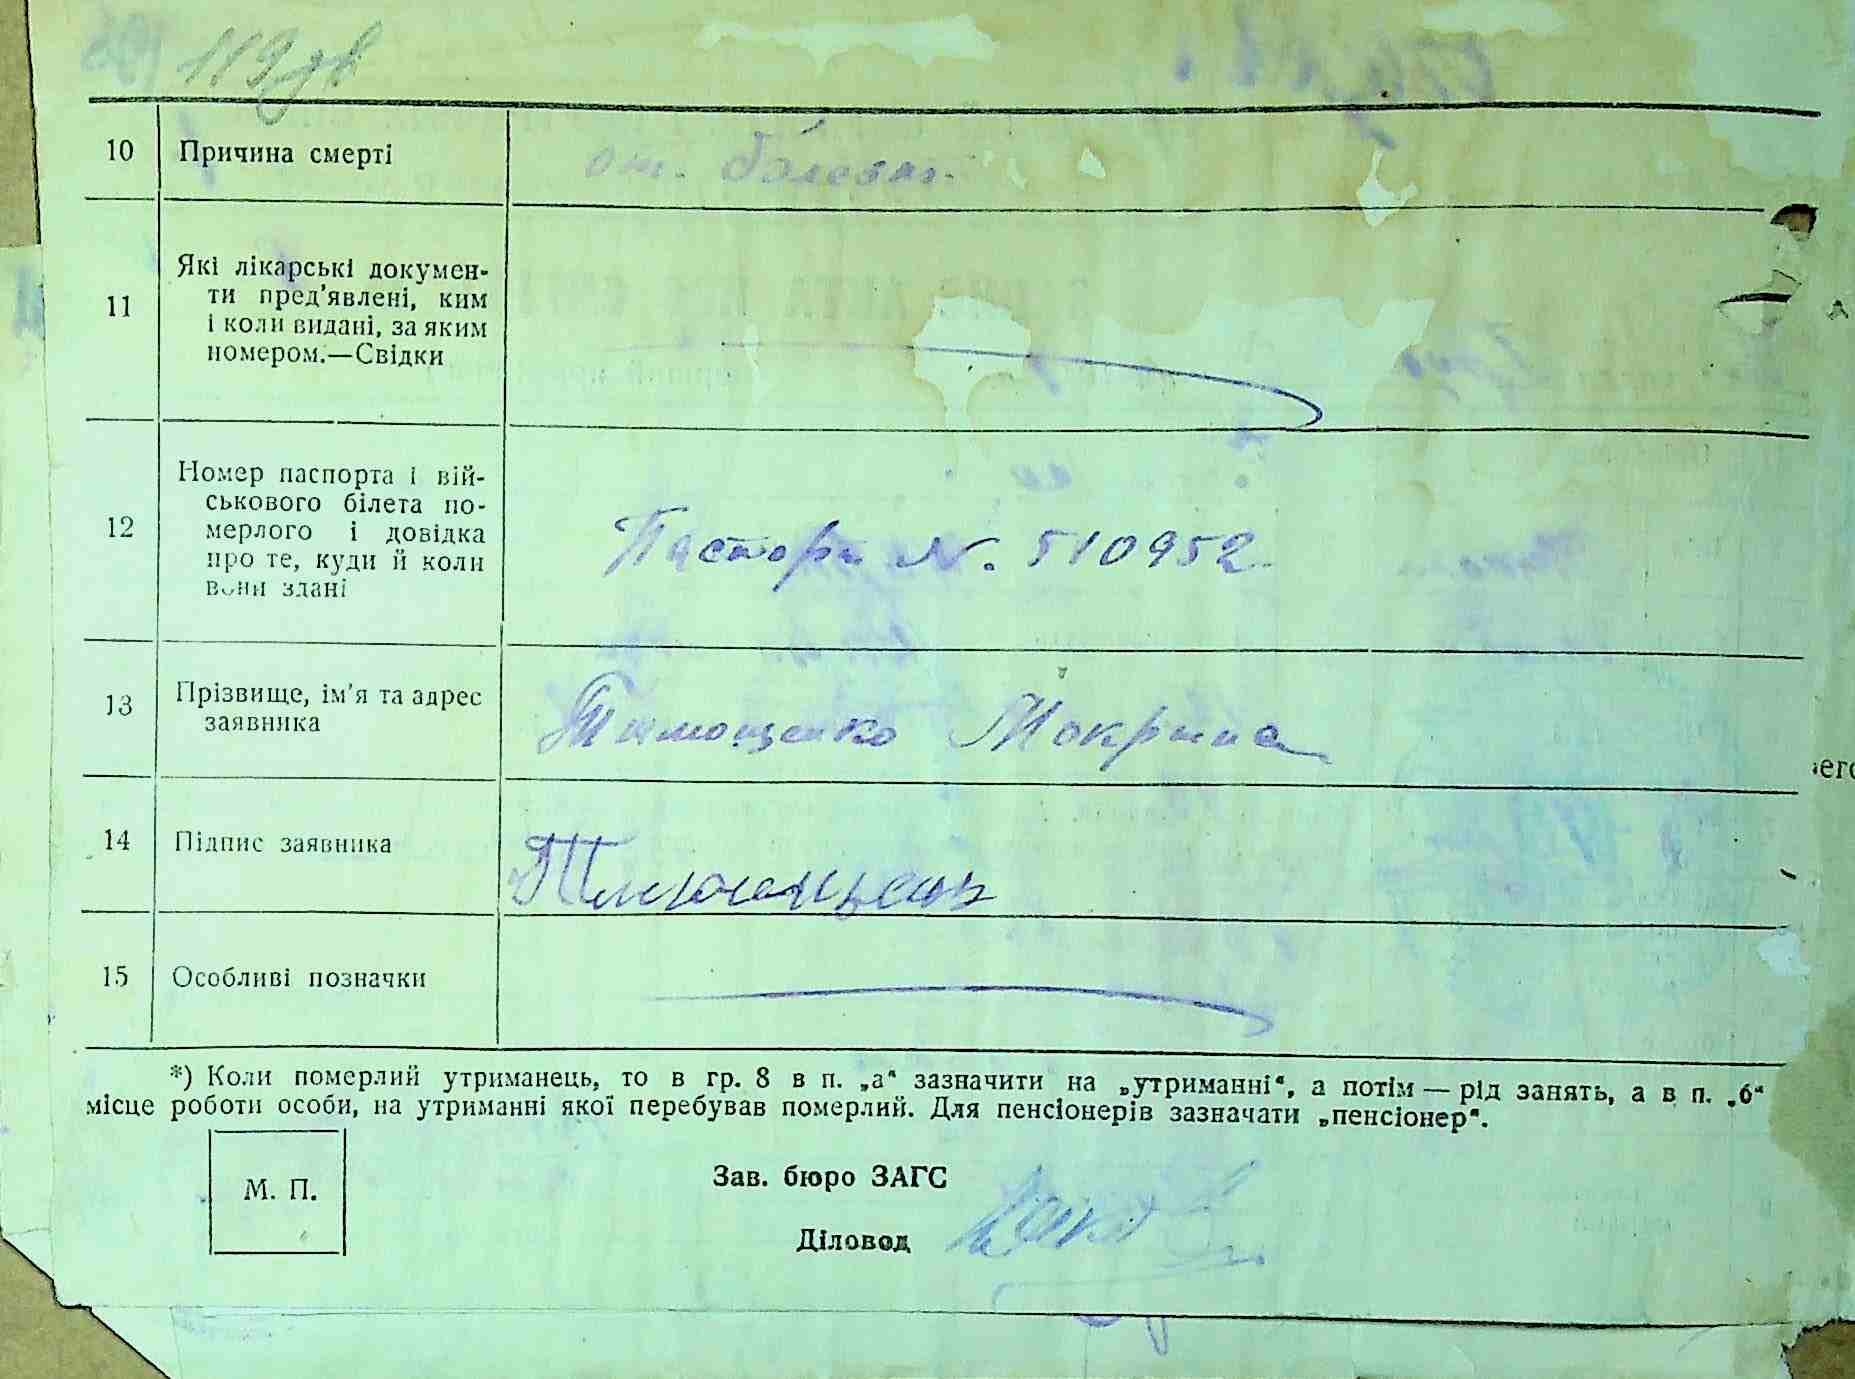 119 зв
10 Причина смерті от болезн.
11 Які лікарські докумен-
ти пред'явлені, ким
і коли видані, за яким
номером.—Свідки
12 Номер паспорта і вій-
ськового білета по-
мерлого і довідка
про те, куди й коли
вони здані
Паспорт N. 510952
13 Прізвище, ім'я та адрес
заявника
Тимощенко Мокрина
14 Підпис заявника
15 Особливі позначки
*) Коли померлий утриманець, то в гр. 8 в п. „а“ зазначити на „утриманні“, а потім — рід занять, а в п. „б“
місце роботи особи, на утриманні якої перебував померлий. Для пенсіонерів зазначати „пенсіонер“.
М. П.
Зав. бюро ЗАГС
Діловод